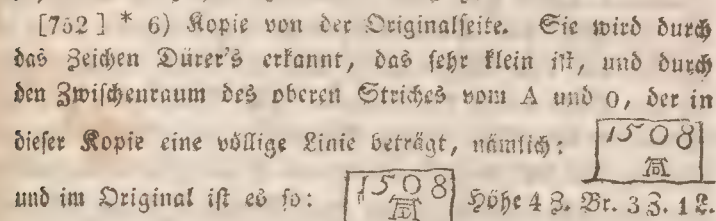 [752] * 6) Kopie von der Originalseite. Sie wird durch
das Zeichen Dürer's erkannt, das sehr klein ist, und durch
den Zwischenraum des oberen Striches vom A und 0, der in
dieser Kopie eine völlige Linie beträgt, nämlich: 1508 AD
und im Original ist es so: 1508 AD Höhe 4 Z. Br. 3 Z. 1 L.